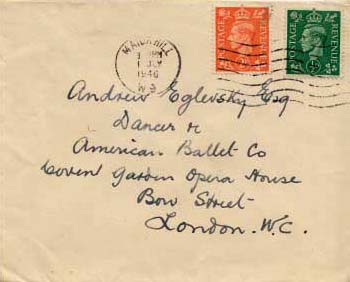 MAIDA HILL
1 JLY
1946
W.9
POSTAGE REVENUE
POSTAGE REVENUE
Andrew Eglevsky Esq
Dancer
American Ballet Co
Coven Garden Opera House
Bow Street
London. W.C.